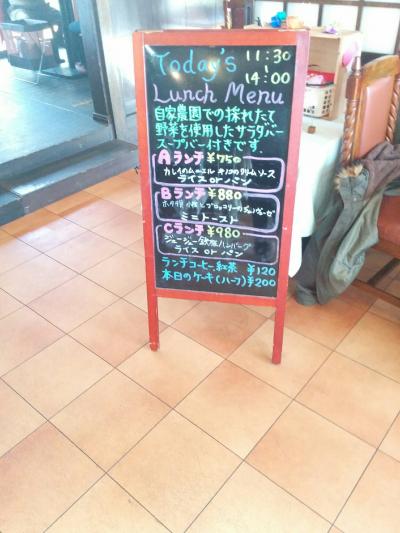 Today's 11:30
~
14:00
Lunch Menu
自家農園での採れたて
野菜を使用したサラダバー
スープバー付きです。
Aランチ ¥750
カレイのムニエル きのこクリームソース
ライス or パン
Bランチ ¥880
ミニトースト
Cランチ ¥980
ジュージュー鉄板ハンバーグ
ライス or パン
ランチコーヒー 紅茶 ¥120
本日のケーキ(ハーフ) ¥200